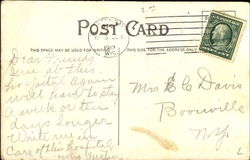 POST CARD
THIS SPACE MAY BE USED FOR
THIS SIDE FOR THE ADDRESS ONLY.
Dear Friends
at this
Hospital Again
will have to stay
a week or ten
days longer
Write me in
Care of this hospital
Mrs
Mrs E C Davis
Boonville
N.Y.